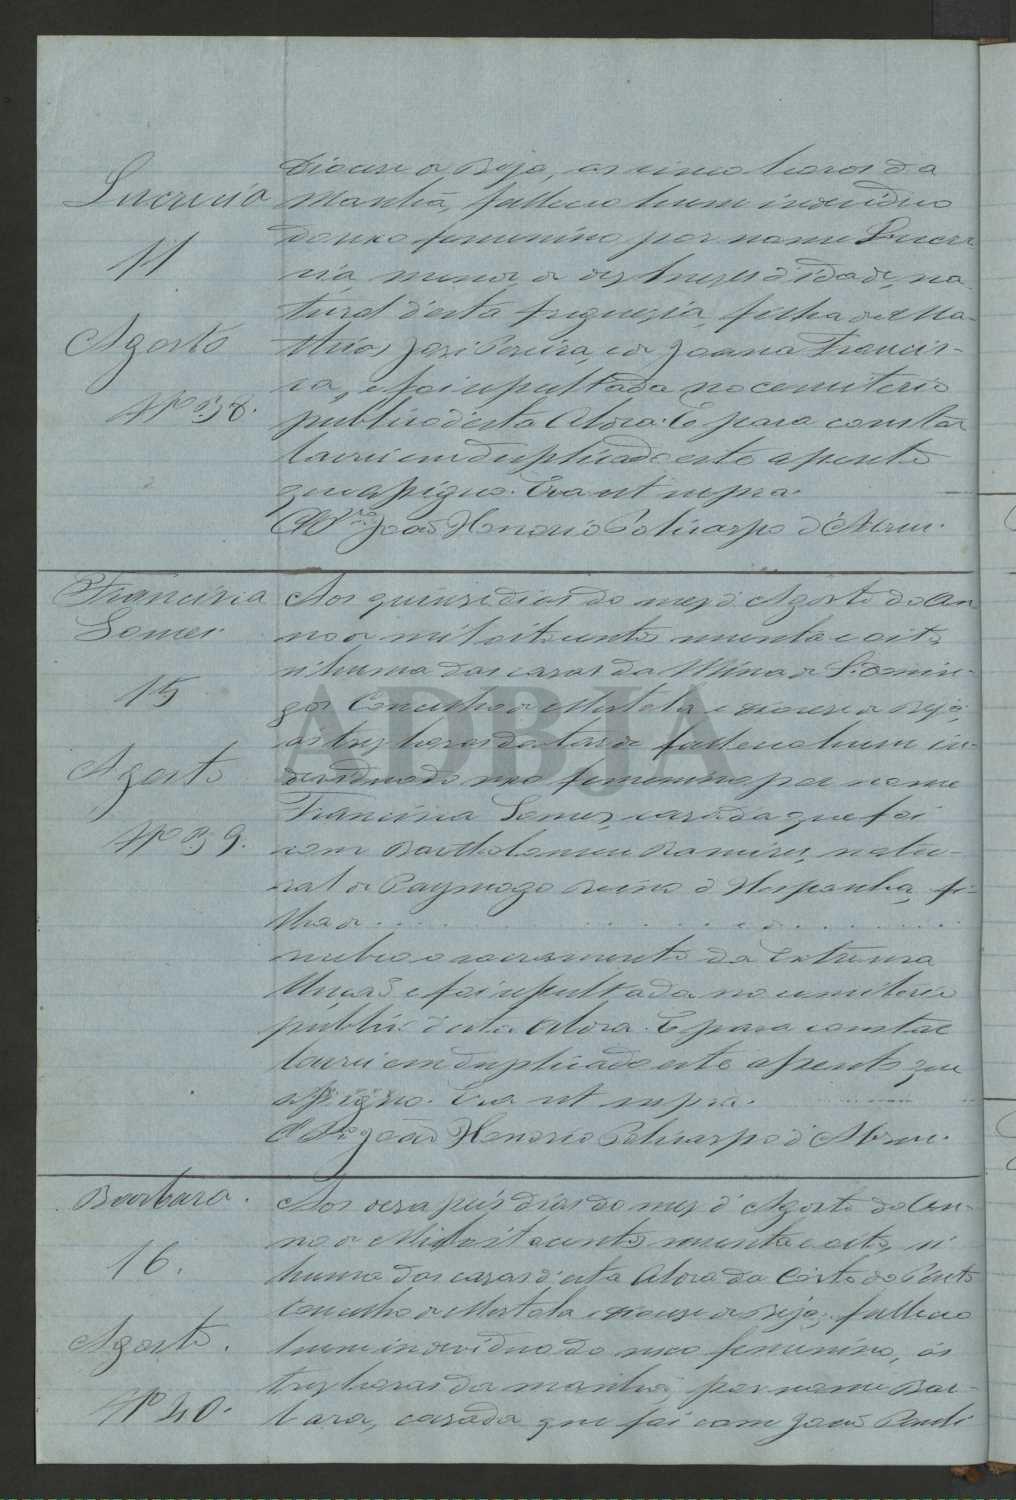 Lucrecia
11
Agosto
Nº 38.
Diocese de Beja, as cinco horas da
Manhã, falleceu hum individuo
do sexo femenino por nome Lucre
cia, menor, de dez mezes d'idade, na
tural d'esta freguezia, filha de Ma-
thias José Pereira, e de Joanna Francis-
ca, e foi sepultada no cemiterio
publico d'esta Aldea. E para constar
lavrei em duplicado este assento
que assigno. Era ut supra.
João Honorio Policarpo d'Abreu.
Francisca
Gomes.
15
Agosto
Nº 39.
Aos quinze dias do mez d'Agosto do An
no de mil oitocentos noventa e oito
n'huma das casas da Mina de S. Domin-
gos Concelho de Mertola e Diocese de Beja,
as tres horas da tarde falleceu hum in-
dividuo do sexo femenino por nome
Francisca Gomes, casada que foi
com Bartholomeu Ramires, natu-
ral de Paymogo Reino d'Hespanha, fi-
lha de . . . . . . . . . . e de . . . . . . . .
recebeo o sacramento da Extrema
Unção e foi sepultada no cemiterio
publico d'esta Aldea. E para constar
lavrei em duplicado este assento que
assigno. Era ut supra.
João Honorio Policarpo d'Abreu.
Barbara.
16.
Agosto.
Nº 40.
Aos dezaseis dias do mez d'Agosto do An-
no de Mil oitocentos noventa e oito, n'
huma das casas d'esta Aldea da Corte do Pinto
Concelho de Mertola e Diocese de Beja, falleceo
hum individuo do sexo femenino, ás
tres horas da manhã, por nome Bar-
bara, casada que foi com João
ADBJA